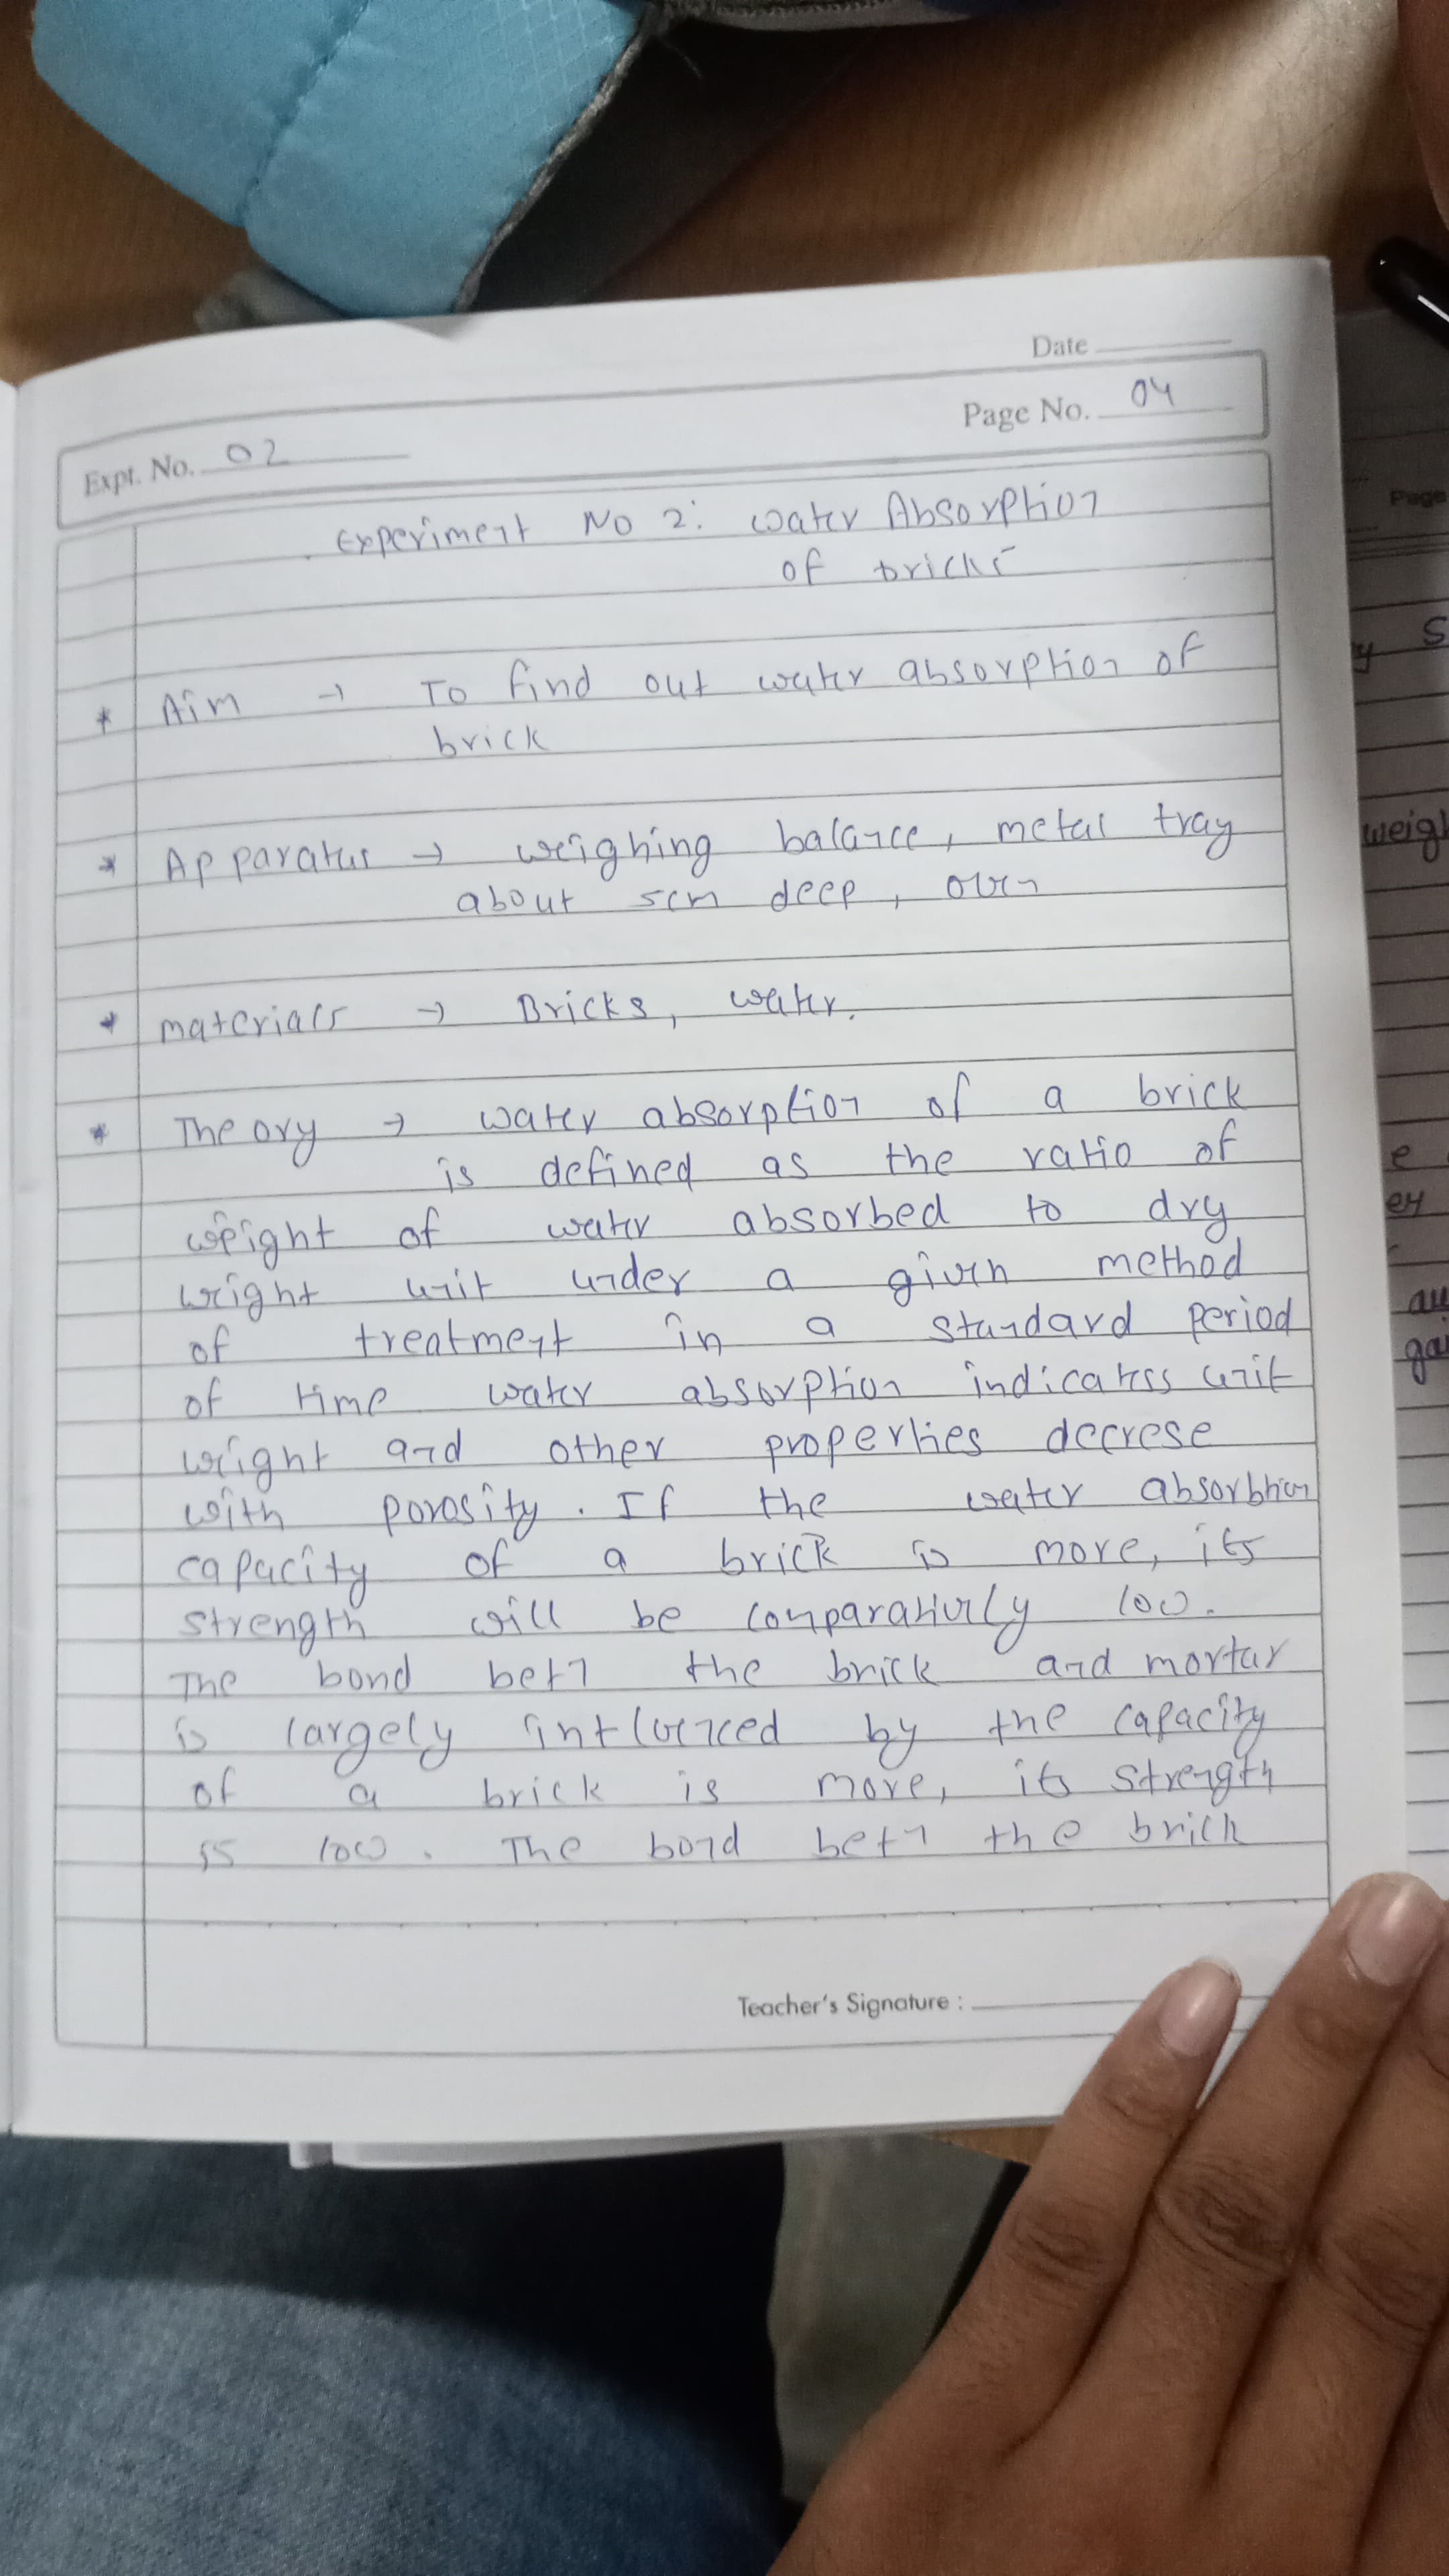 Date
Page No. 04
Expt. No. 02
Experiment No 2: water Absorption
of bricks
* Aim → To find out water absorption of
brick
* Apparatus → weighing balance, metal tray
about 5cm deep, oven
* materials → Bricks, water.
* Theory → water absorption of a brick
is defined as the ratio of
weight of water absorbed to dry
weight unit under a given method
of treatment in a standard period
of time water absorption indicatess unit
weight and other properties decrese
with porosity. If the water absorbtion
capacity of a brick is more, its
strength will be comparatively low.
The bond betn the brick and mortar
is largely influenced by the capacity
of a brick is more, its strength
is low. The bond betn the brick
Teacher's Signature :
Page
y S
weigh
e
er
au
gai